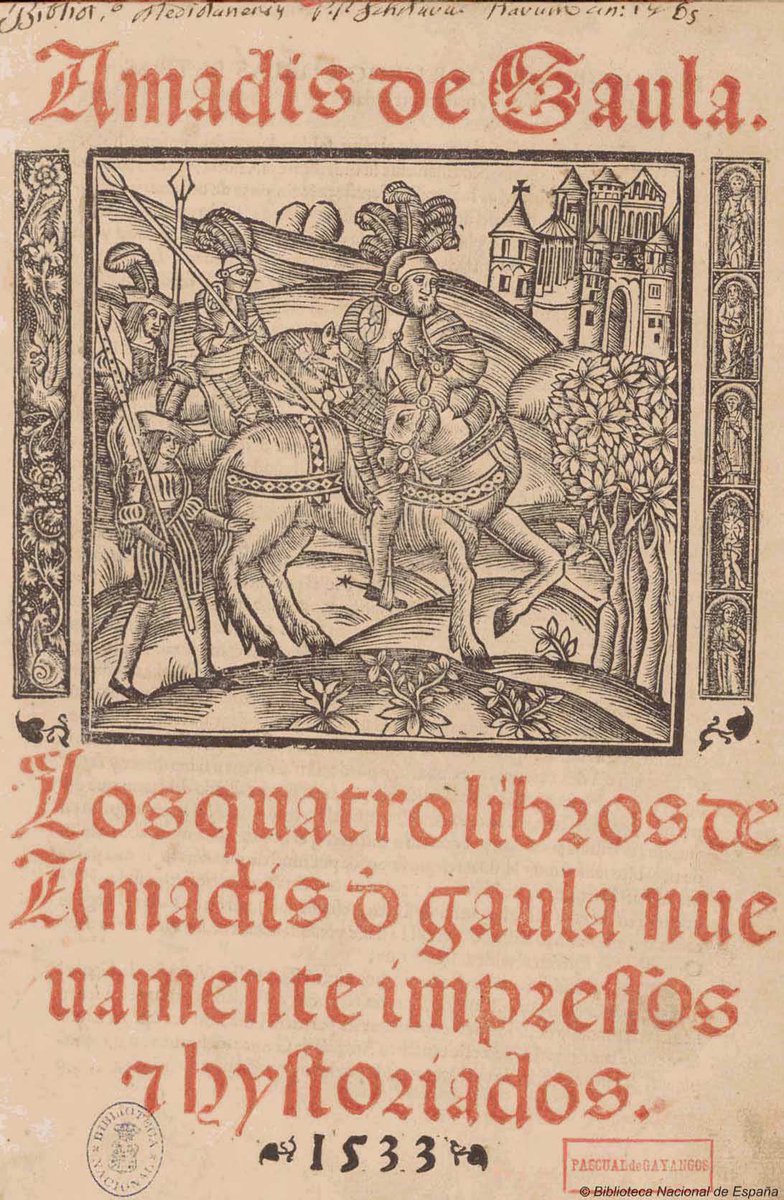 Amadis de Gaula.
Los quatro libros de
Amadis đ gaula nue
uamente impressos
⁊ hystoriados.
1533
BIBLIOTECA NACIONAL
PASCUAL de GAYANGOS
© Biblioteca Nacional de España